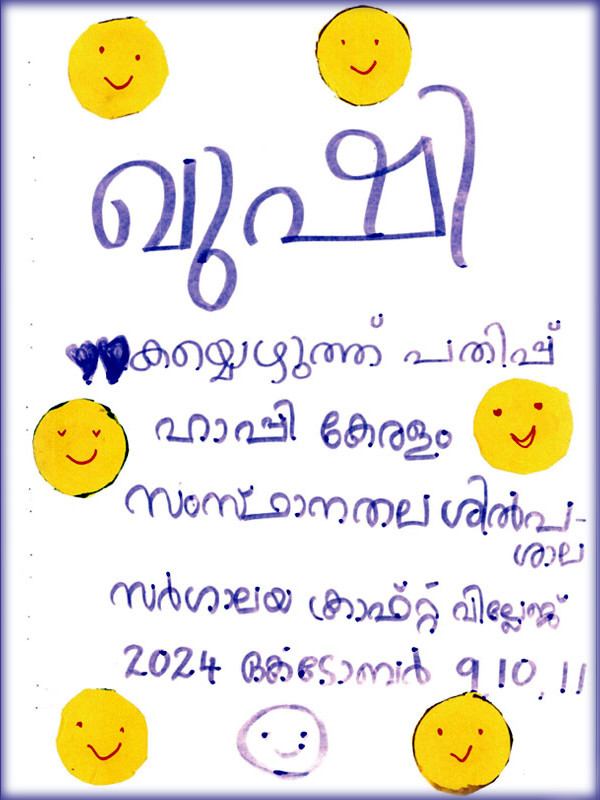 ഖുഷി
കയ്യെഴുത്ത് പതിപ്പ്
ഹാപ്പി കേരളം
സംസ്ഥാനതല ശിൽപ-
ശാല
സർഗാലയ ക്രാഫ്റ്റ് വില്ലേജ്
2024 ഒക്ടോബർ 9,10,11